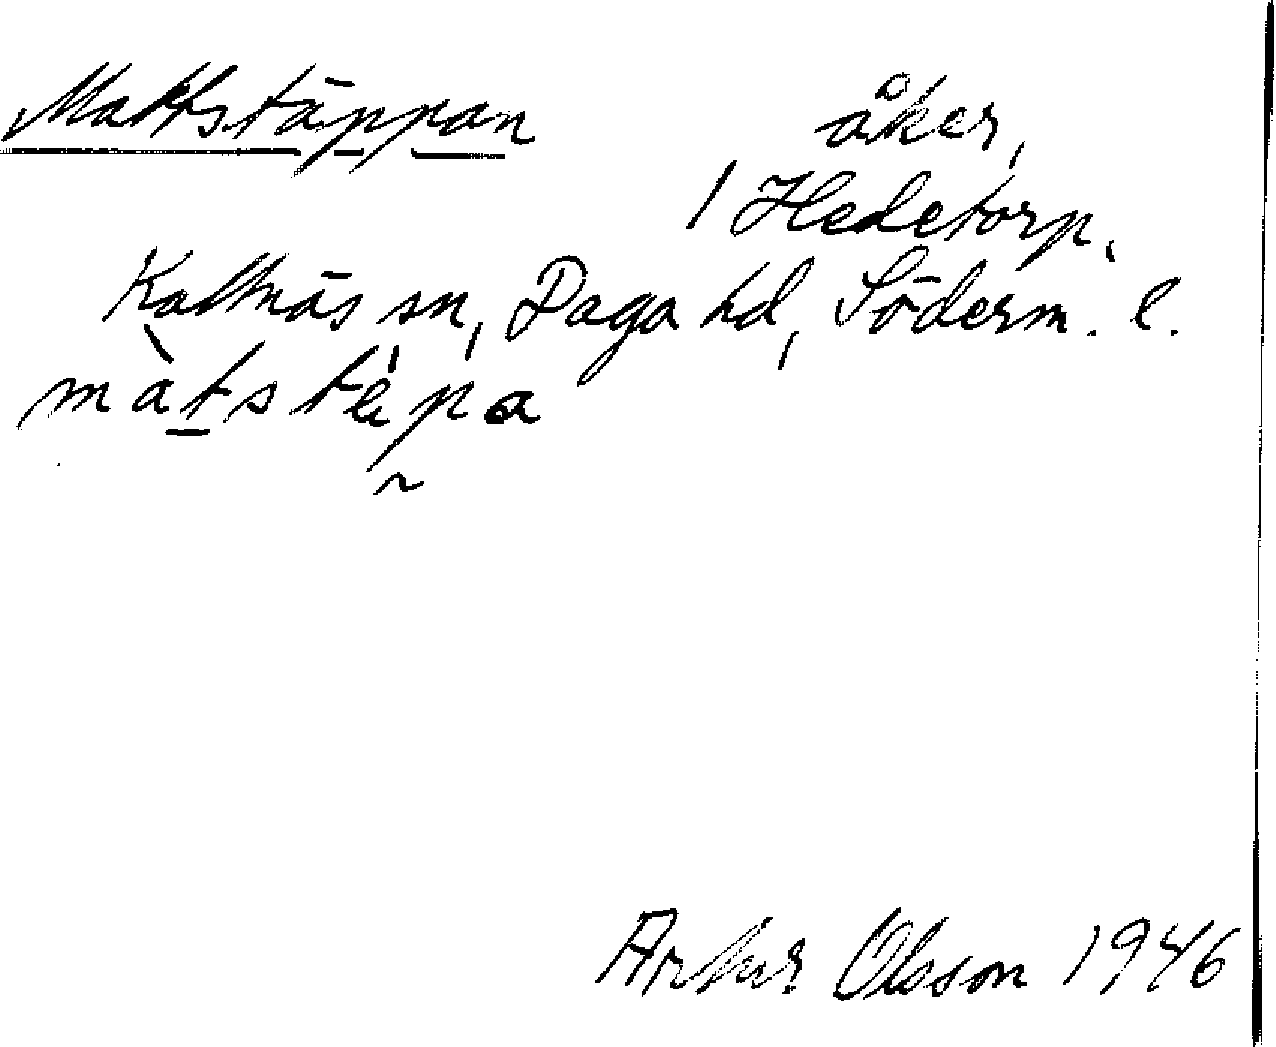 Mattstäppan åker,
1 Hedetorp.
Kattnäs sn, Daga hd, Söderm. l.
màtstäpa
Arthur Olsson 1946